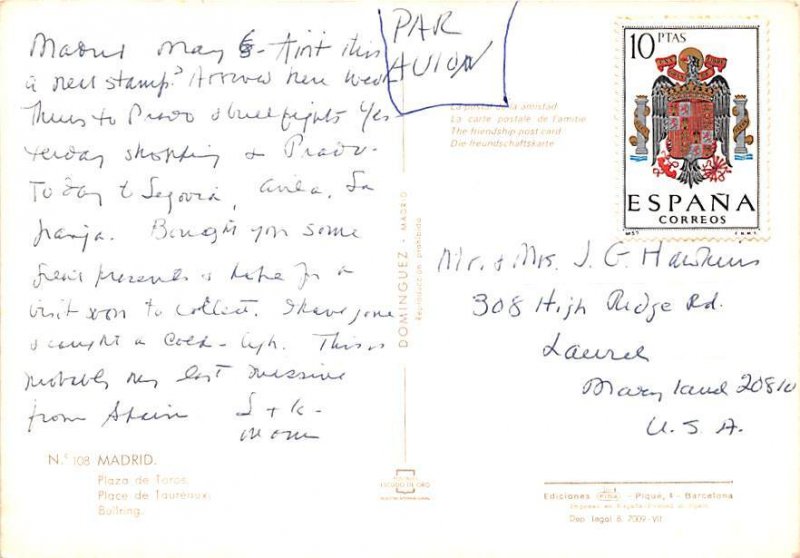 Madrid May 6 - Ain't this
a neat stamp? Arrived here Weds
Thurs to Prado & bullfights Yes-
terday shopping & Prado.
Today to Segovia, Avila, La
Granja. Bought you some
great presents & hope for a
visit soon to collect. I have gone
& caught a cold - ugh. This is
probably my last missive
from Spain L + K -
Mom
PAR
AVION
10 PTAS
ESPAÑA
CORREOS
F.N.M.T.
La carte postale de l'amitié
The friendship post card
Die freundschaftskarte
DOMINGUEZ - MADRID
Reproducción prohibida
Mr. & Mrs. J. G. Hawkins
308 High Ridge Rd.
Laurel
Maryland 20810
U. S. A.
N.º 108 MADRID.
Plaza de Toros.
Place de Taureaux.
Bullring.
ESCUDO DE ORO
Ediciones - Piqué, - Barcelona
Dep. legal B. 7009-VII